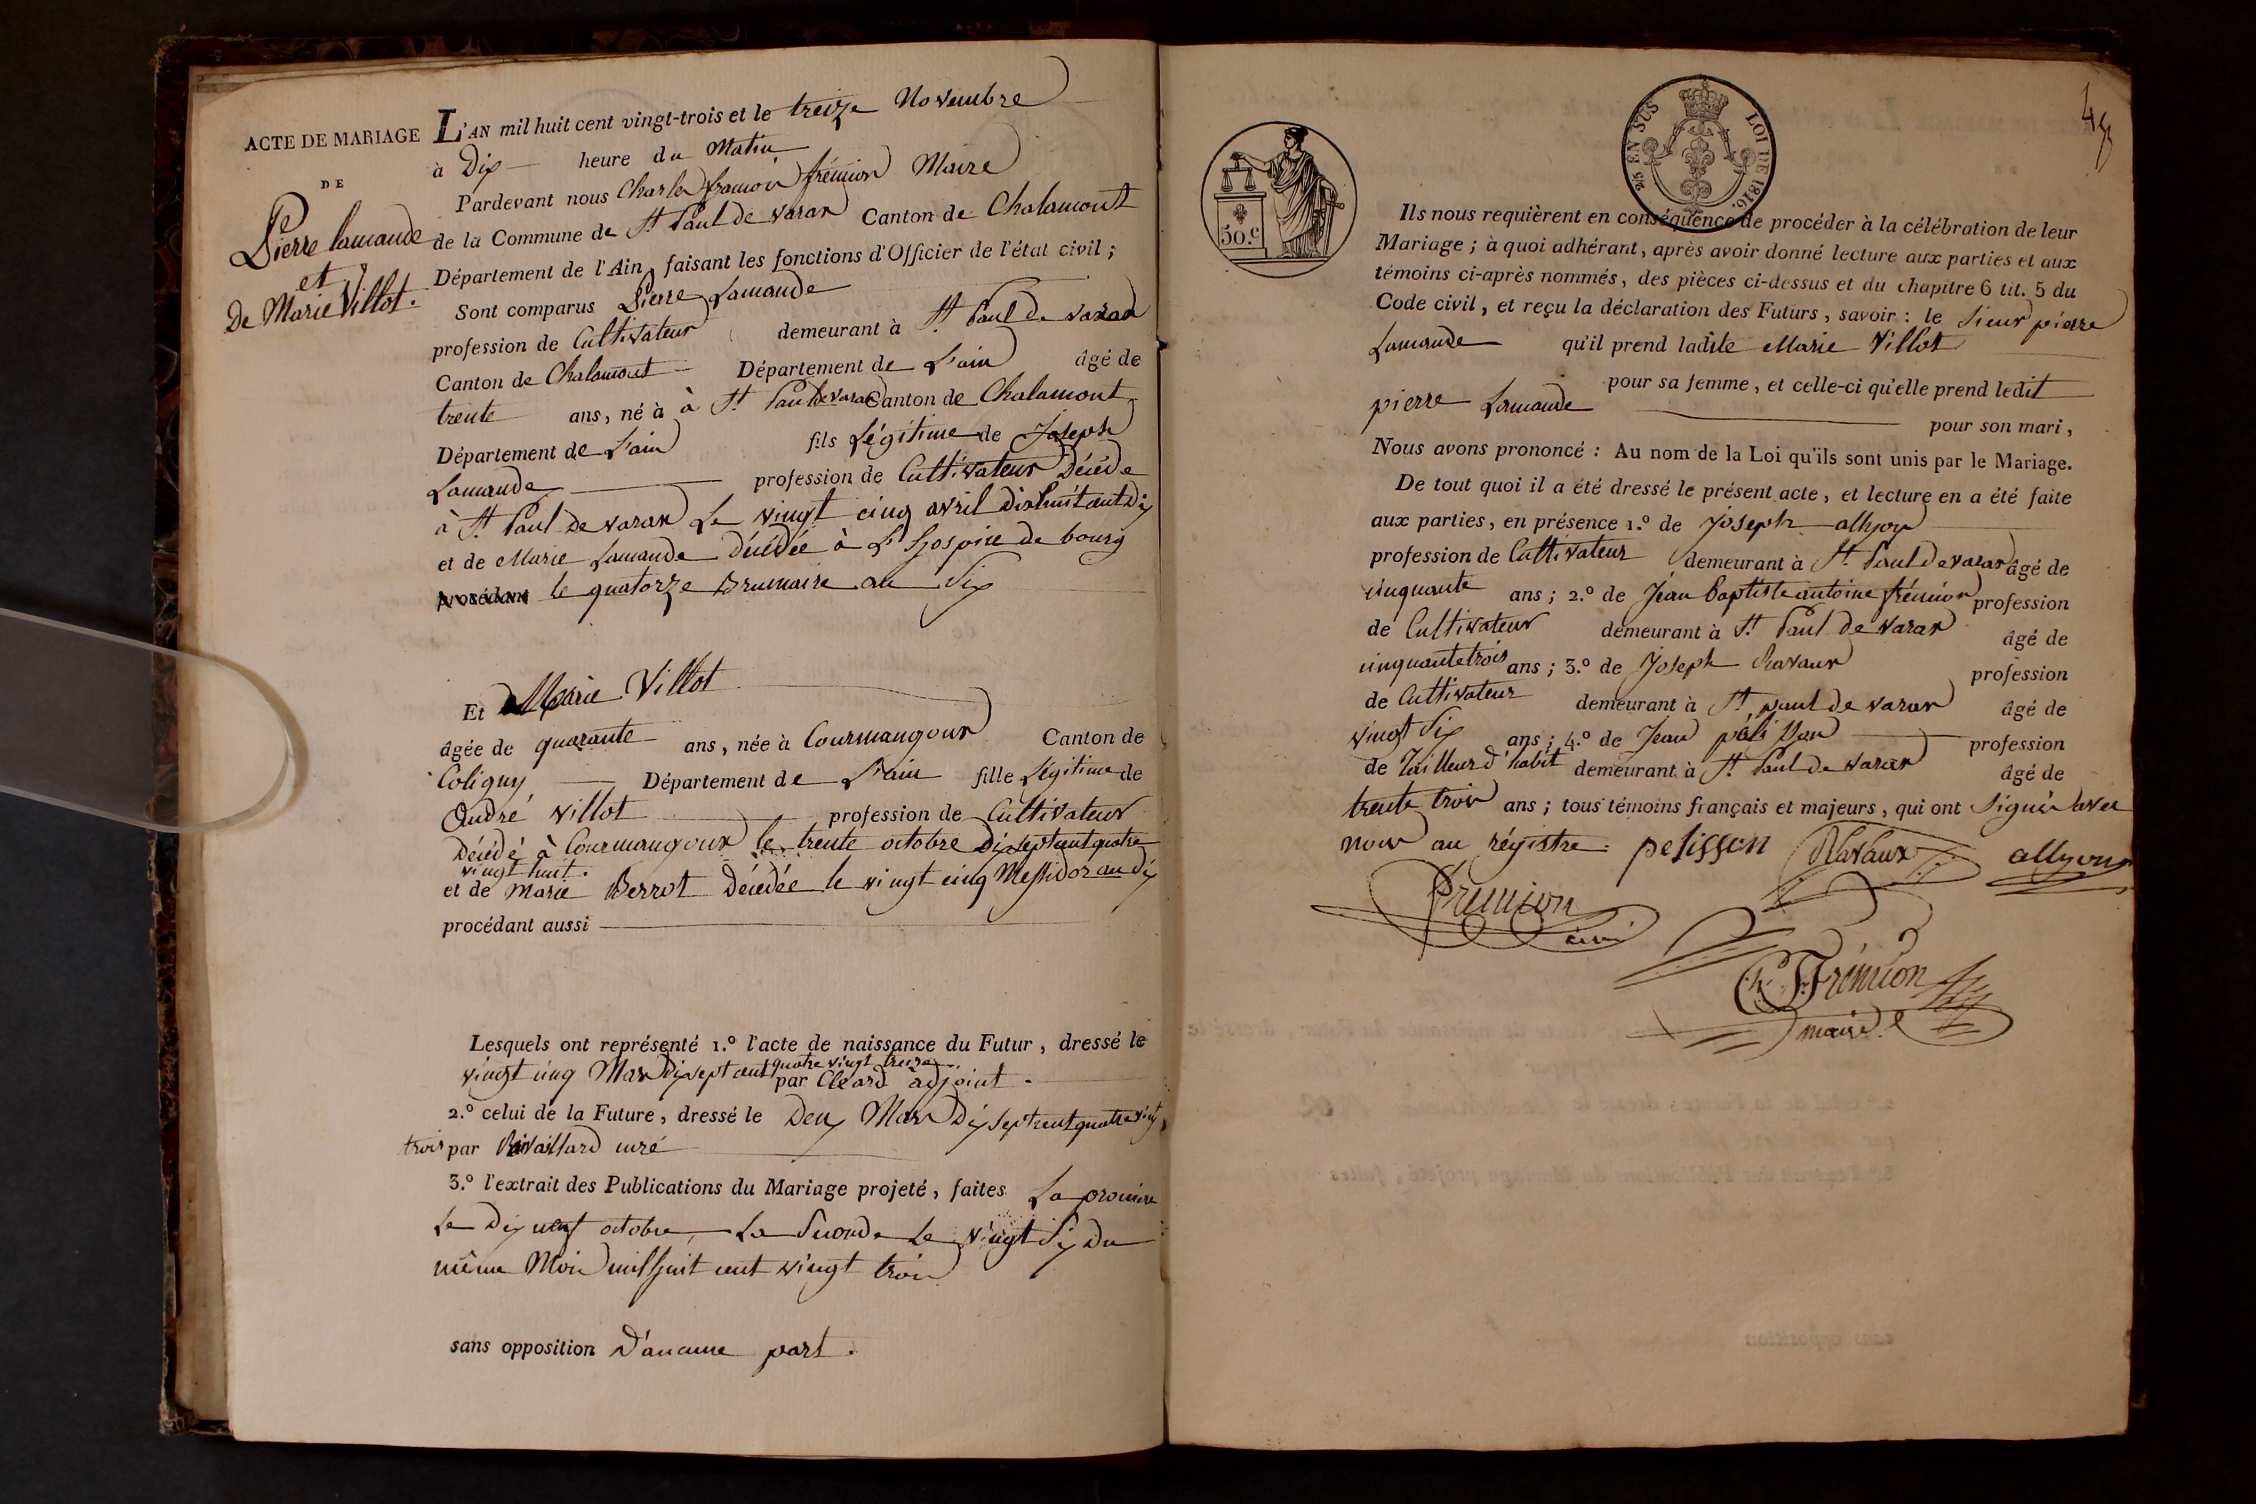 ACTE DE MARIAGE
DE
Pierre lamande
et
De Marie Villot.
L'AN mil huit cent vingt-trois et le treize Novembre
à Dix heure du Matin
Pardevant nous Charles françois frémion Maire
de la Commune de St Paul de varax Canton de Chalamont
Département de l'Ain, faisant les fonctions d'Officier de l'état civil ;
Sont comparus Pierre Lamande
profession de Cultivateur demeurant à St Paul de varax
Canton de Chalamont Département de L'ain âgé de
trente ans, né à à St Paul de varax Canton de Chalamont
Département de L'ain fils Légitime de Joseph
Lamande profession de Cultivateur Décédé
à St Paul de varax Le vingt cinq avril dixhuit cent Dix
et de Marie Lamande Décédée à L'hospice de bourg
procédant le quatorze Brumaire an Six
Et Marie Villot
âgée de quarante ans, née à Courmangoux Canton de
Coligny Département de L'ain fille Légitime de
André villot profession de Cultivateur
Décédé à Courmangoux le trente octobre Dix sept cent quatre
vingt huit.
et de Marie Berrot Décédée le vingt cinq Messidor an dix
procédant aussi
Lesquels ont représenté 1.º l'acte de naissance du Futur, dressé le
vingt cinq Mars Dix sept cent quatre vingt treize par Cléard adjoint.
2.º celui de la Future, dressé le Deux Mars Dix sept cent quatre vingt
trois par Ravaillard curé
3.º l'extrait des Publications du Mariage projeté, faites La premiere
Le Dix neuf octobre, La Seconde Le vingt Six Du
même Mois mil huit cent vingt trois
sans opposition D'aucune part.
45
2/5 EN SUS LOI DE 1816.
50.c
Ils nous requièrent en conséquence de procéder à la célébration de leur
Mariage ; à quoi adhérant, après avoir donné lecture aux parties et aux
témoins ci-après nommés, des pièces ci-dessus et du chapitre 6 tit. 5 du
Code civil, et reçu la déclaration des Futurs, savoir : le Sieur pierre
Lamande qu'il prend ladite Marie Villot
pour sa femme, et celle-ci qu'elle prend ledit
pierre Lamande
pour son mari,
Nous avons prononcé : Au nom de la Loi qu'ils sont unis par le Mariage.
De tout quoi il a été dressé le présent acte, et lecture en a été faite
aux parties, en présence 1.º de Joseph allyon
profession de Cultivateur demeurant à St Paul de varax âgé de
cinquante ans ; 2.º de Jean baptiste antoine frémion profession
de Cultivateur demeurant à St Paul de varax âgé de
cinquante trois ans ; 3.º de Joseph Ravaux profession
de Cultivateur demeurant à St paul de varax âgé de
vingt Six ans ; 4.º de Jean profession
de Tailleur d'habit demeurant à St Paul de varax âgé de
trente trois ans ; tous témoins français et majeurs, qui ont Signés avec
nous au régistre. pelisson Ravaux allyon
fremion
Ch Fr frémion
maire